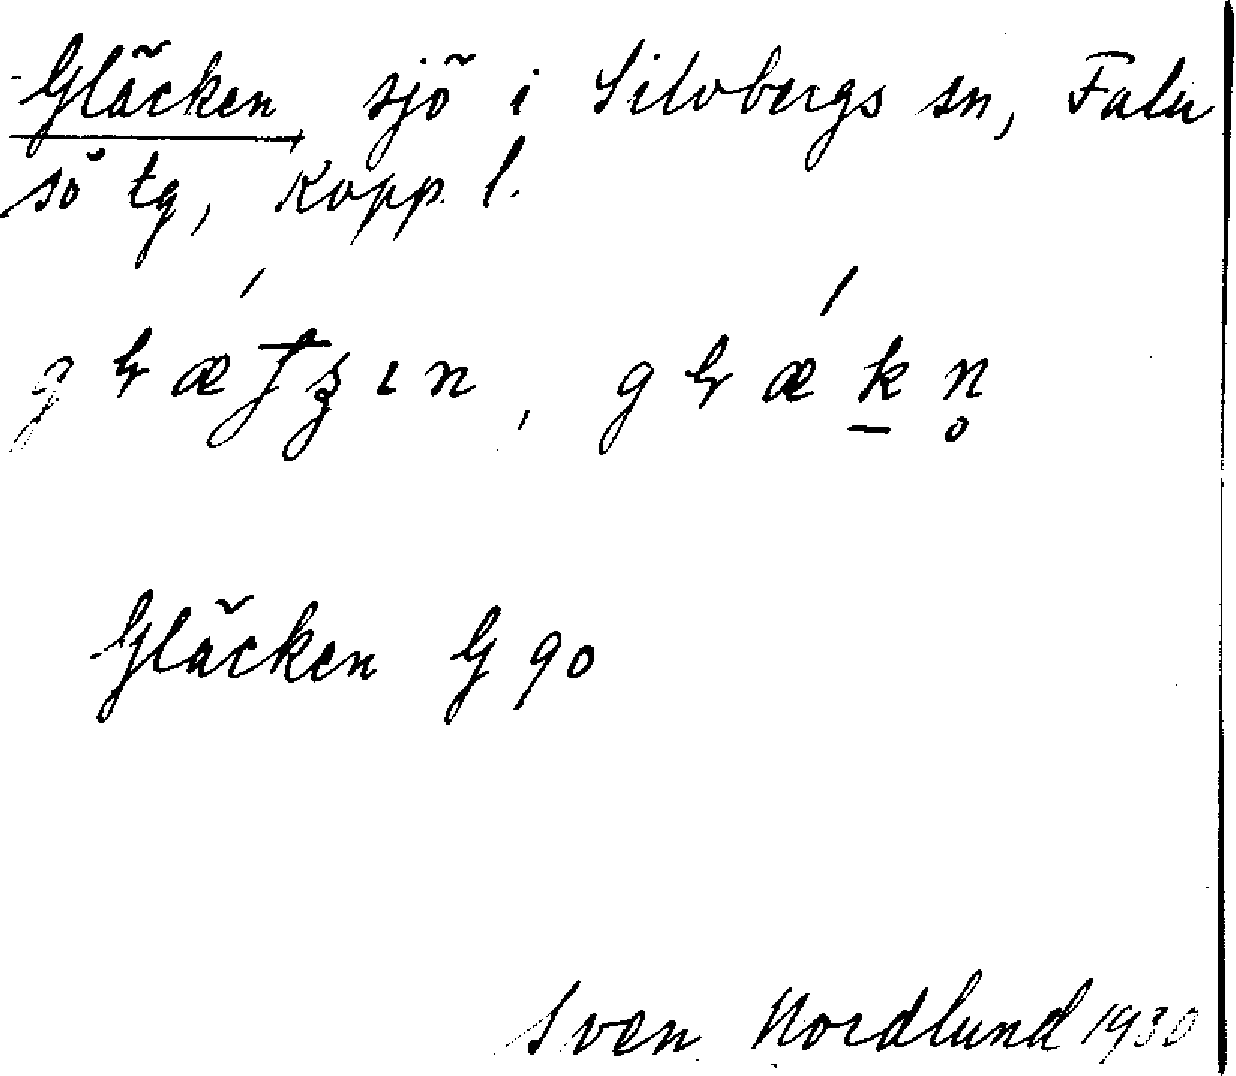 Gläcken sjö i Silvbergs sn, Falu
sö tg, Kopp. l.
Gläcken G 90
Sven Nordlund 1930